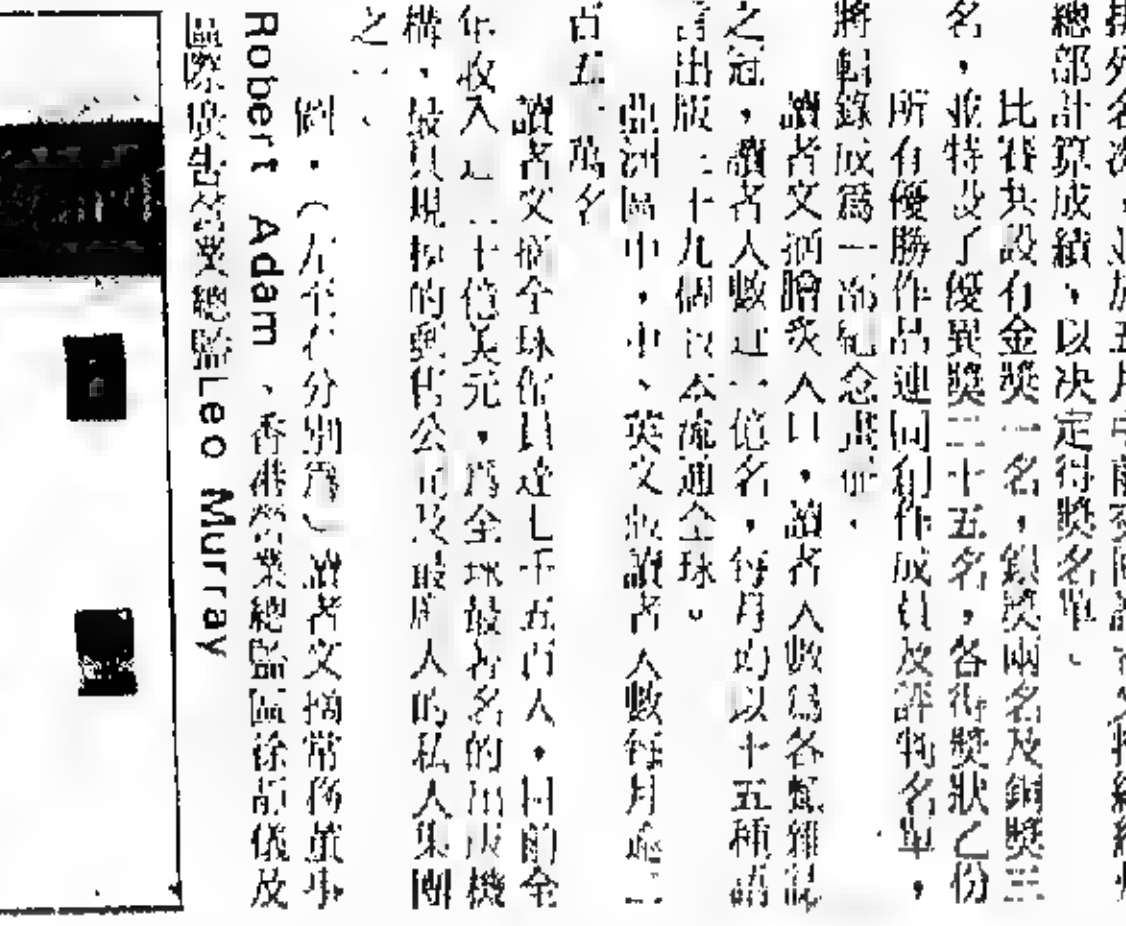 總部計算成績，以決定得獎名單。
比賽共設有金獎一名，銀獎兩名及銅獎三
名，並特設了優異獎二十五名，各得獎狀乙份
所有優勝作品連同創作成員及評判名單，
將輯錄成爲一部紀念畫冊。
讀者文摘膾炙人口，讀者人數爲各類雜誌
之冠，讀者人數近一億名，每月均以十五種語
言出版三十九個版本流通全球。
亞洲區中，中、英文版讀者人數每月逾
百五 萬名
讀者文摘全球僱員達七千五百人，目前全
年收入近二十億美元，爲全球最著名的出版機
構，最具規模的 售公司及最 人的私人集團
之一。
圖：（左至右分別爲）讀者文摘常務董事
Robert Adam、香港營業總監區徐靜儀及
國際廣告營業總監Leo Murray